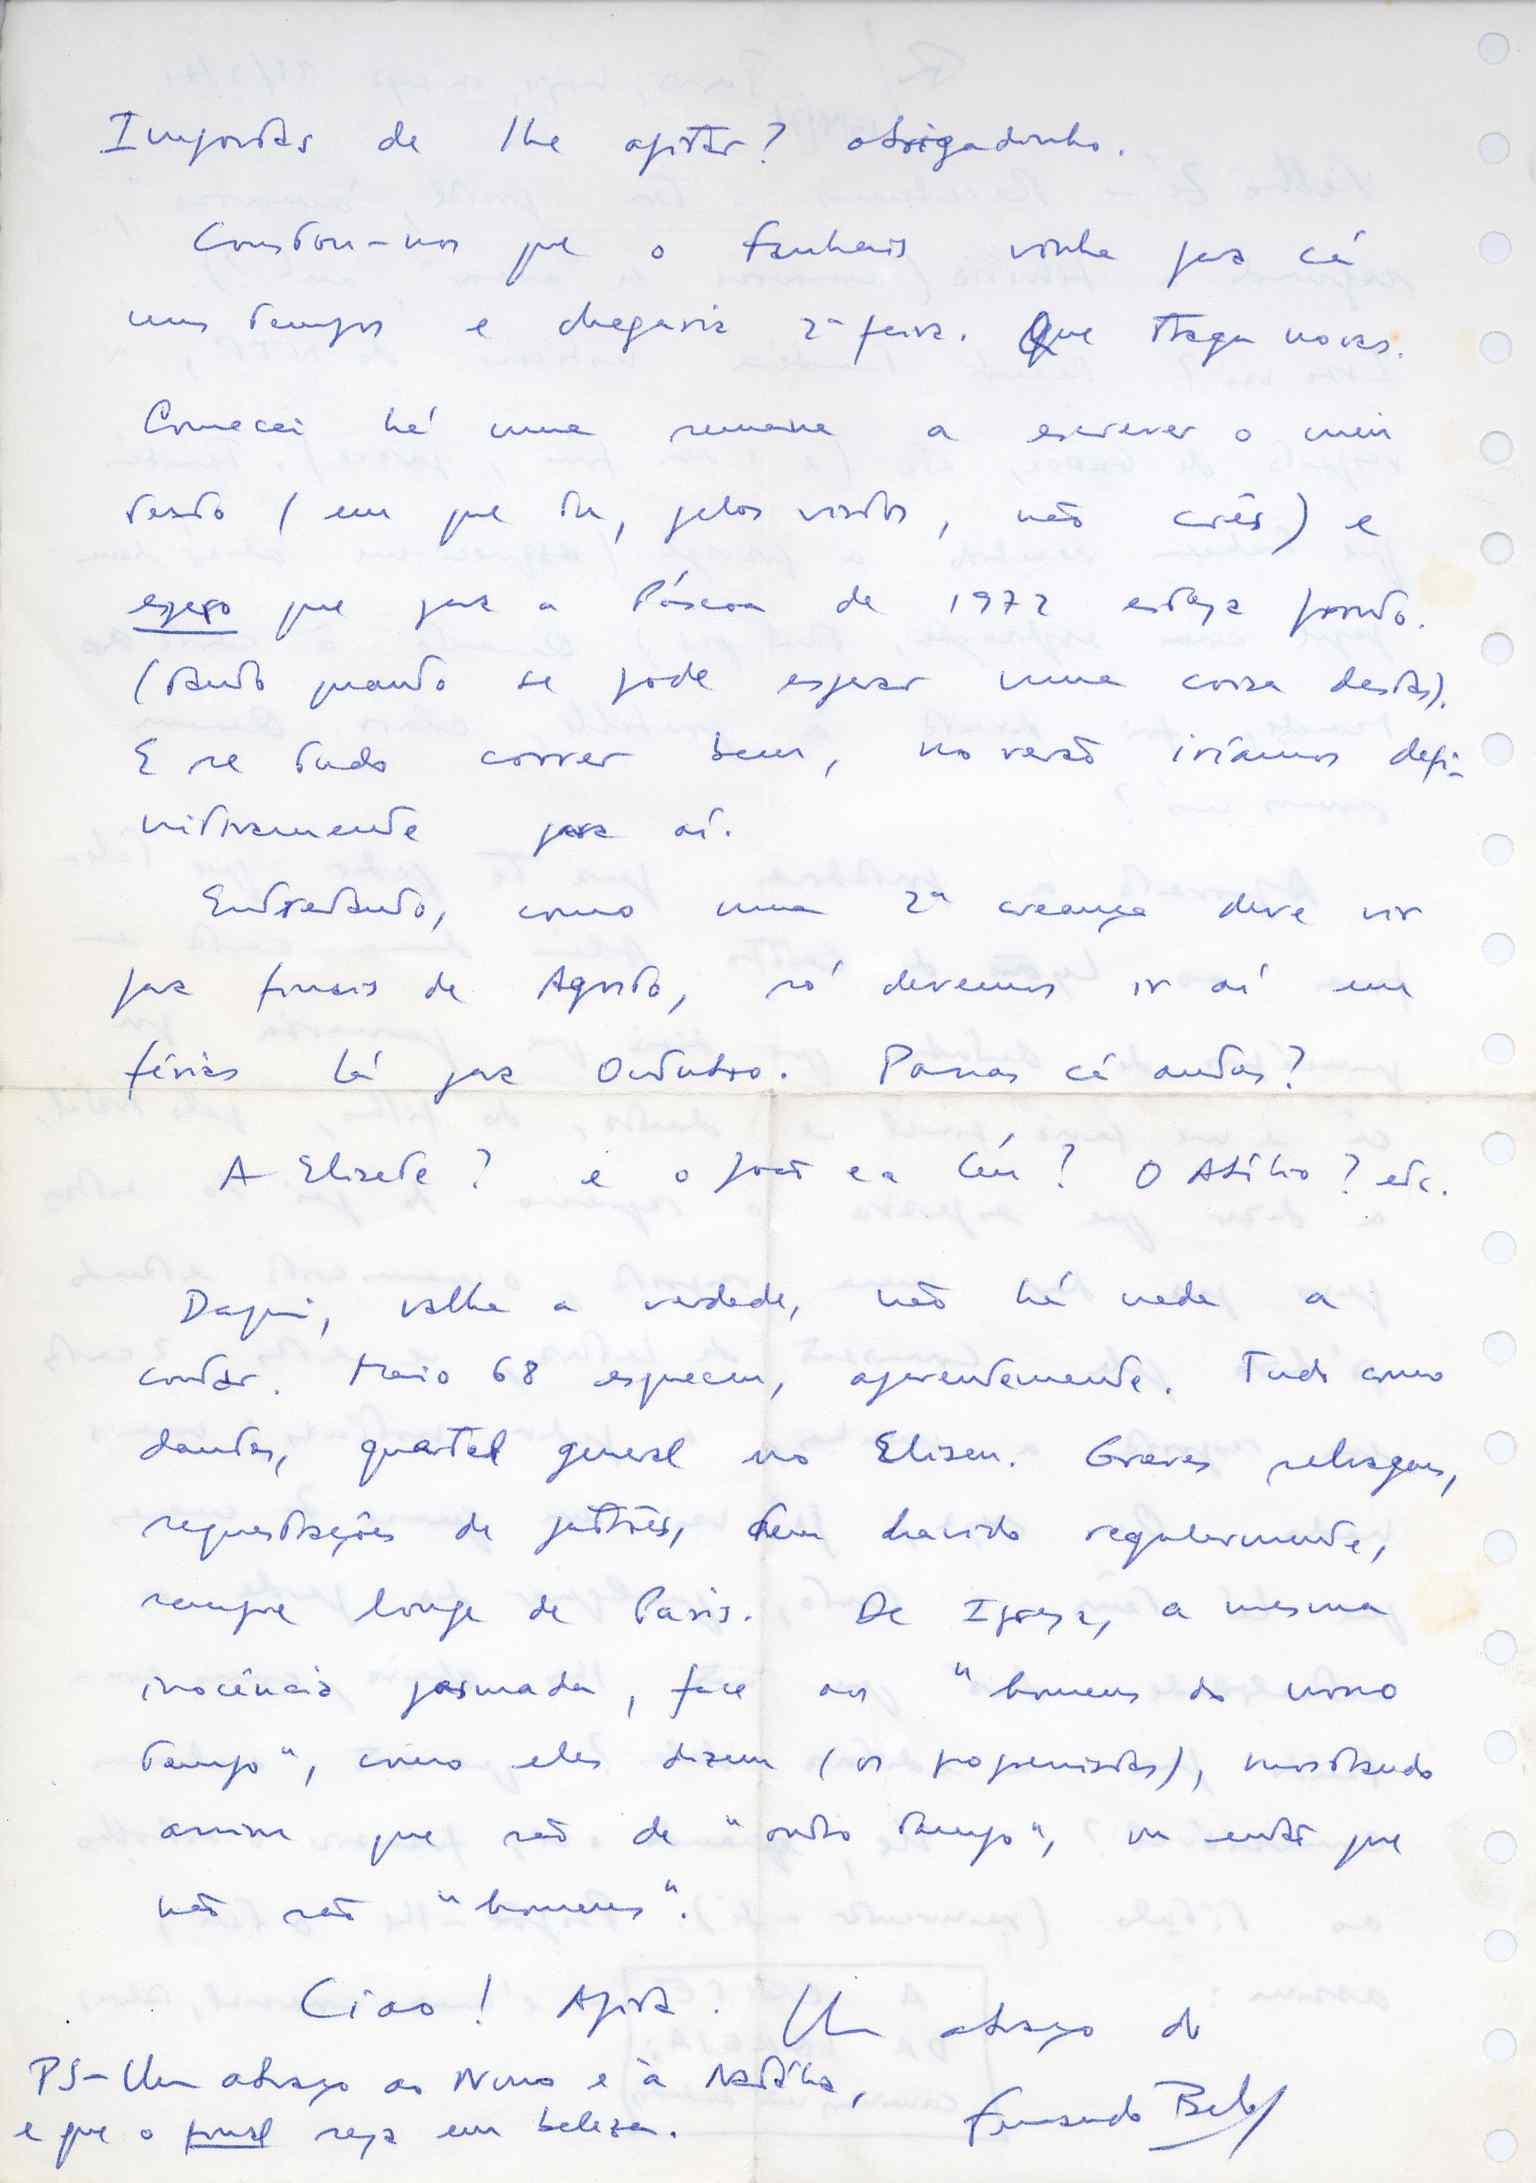 Importas de lhe apitar? obrigadinho.
Constou-nos que o Fanhais vinha para cá
uns tempos e chegaria 2ª feira. Que traga novas.
Comecei há uma semana a escrever o meu
texto (em que tu, pelos vistos, não crês) e
espero que para a Páscoa de 1972 esteja pronto.
(tanto quanto se pode esperar uma coisa destas).
E se tudo correr bem, no verão iríamos defi-
nitivamente para aí.
Entretanto, como uma 2ª creança deve vir
para finais de Agosto, só devemos ir aí em
férias lá para Outubro. Passas cá antes?
A Elisete? e o João e a Céu? O Abílio? etc.
Daqui, valha a verdade, não há nada a
contar. Maio 68 esqueceu, aparentemente. Tudo como
dantes, quartel general no Eliseu. Greves selvagens,
sequestrações de patrões, tem havido regularmente,
sempre longe de Paris. De Igreja, a mesma
inocência pasmada, face aos "homens do nosso
tempo", como eles dizem (os progressistas), mostrando
assim que são de "outro tempo", ou então que
não são "homens".
Ciao! Apita. Um abraço do
PS- Um abraço ao Nuno e à Natália,
e que o jornal seja em beleza.
Fernando Belo